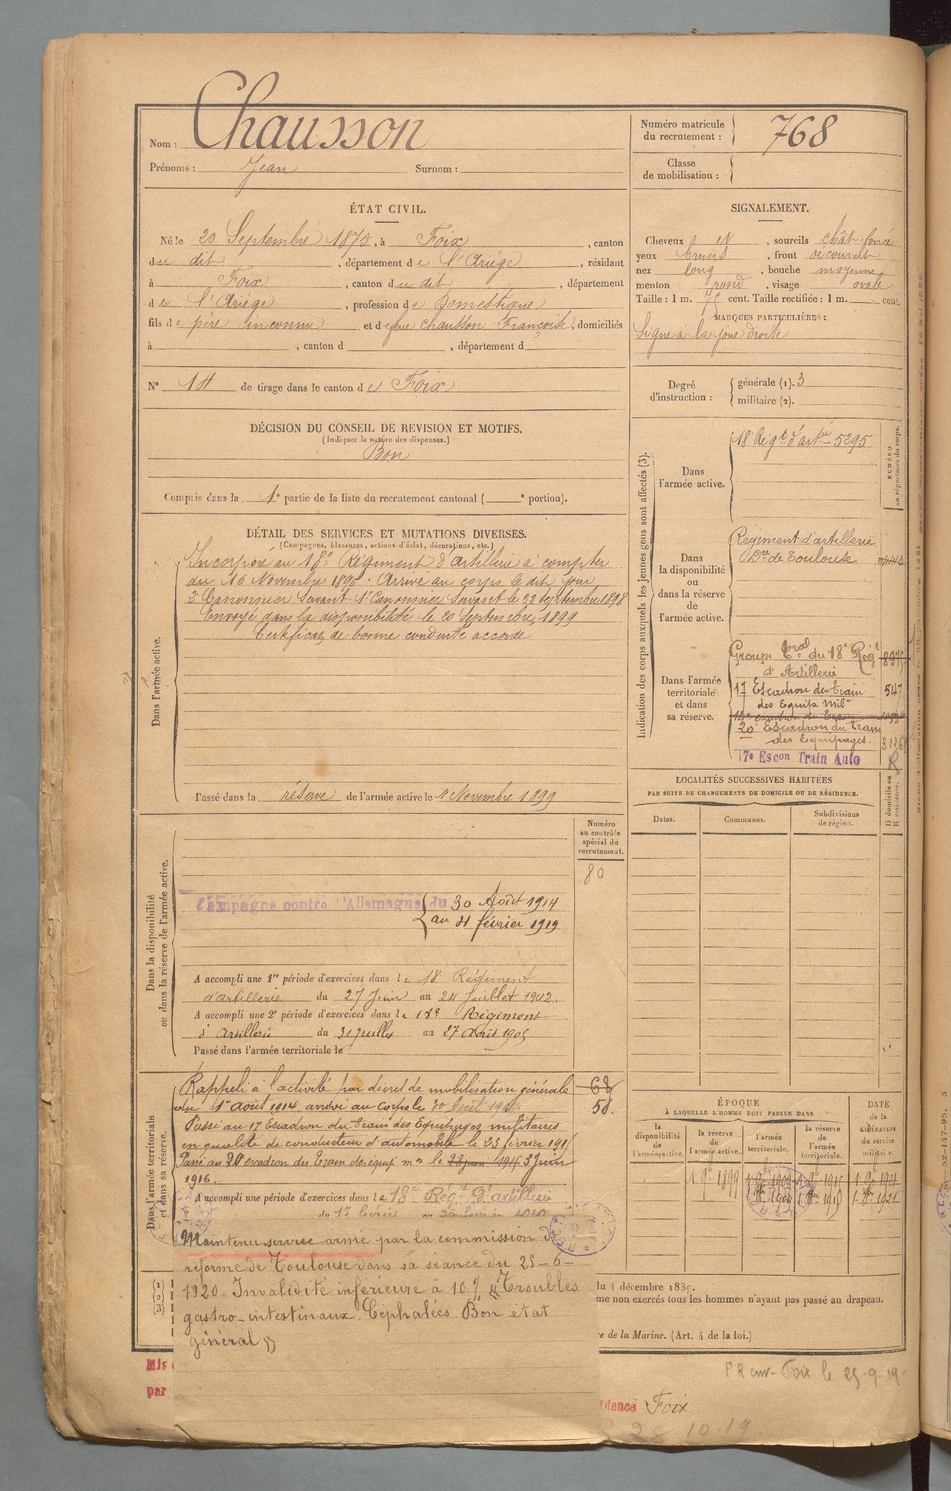 Nom : Chausson
Prénoms : Jean Surnom :
Numéro matricule
du recrutement : 768
Classe
de mobilisation :
ÉTAT CIVIL.
Né le 20 Septembre 1875, à Foix, canton
du dit, département de l'Ariège, résidant
à Foix, canton du dit, département
de l'Ariège, profession de Domestique
fils de père inconnu et de Chausson Françoise, domiciliés
à , canton d , département d
N° de tirage dans le canton de Foix
DÉCISION DU CONSEIL DE REVISION ET MOTIFS.
(Indiquer la nature des dispenses.)
Bon
Compris dans la 1e partie de la liste du recrutement cantonal ( e portion).
SIGNALEMENT.
Cheveux , sourcils chât. foncé
yeux bruns, front découvert
nez long, bouche moyenne
menton rond, visage ovale
Taille : 1 m. cent. Taille rectifiée : 1 m. cent.
MARQUES PARTICULIÈRES :
Signe à la joue droite
Degré
d'instruction :
générale (1). 3
militaire (2).
DÉTAIL DES SERVICES ET MUTATIONS DIVERSES.
(Campagnes, blessures, actions d'éclat, décorations, etc.)
Dans l'armée active.
Incorporé au 18e Régiment d'Artillerie à compter
du 16 Novembre 1896. Arrivé au corps le dit jour
2e Canonnier Servant. 1er Canonnier Servant le 22 septembre 1898
Envoyé dans la disponibilité le 20 Septembre 1899
Certificat de bonne conduite accordé
Passé dans la réserve de l'armée active le 1 Novembre 1899
Indication des corps auxquels les jeunes gens sont affectés (3).
NUMÉRO
au répertoire du corps.
Dans
l'armée active.
18 Régt d'artie 5295
Dans
la disponibilité
ou
dans la réserve
de
l'armée active.
Régiment d'artillerie
de Toulouse
Dans l'armée
territoriale
et dans
sa réserve.
Groupe tral du 18e Rég
d'Artillerie
17 Escadron du Train 547
des Equip. Milre
20e Escadron du Train
des Equipages.
17e Escon Train Auto
R
LOCALITÉS SUCCESSIVES HABITÉES
PAR SUITE DE CHANGEMENTS DE DOMICILE OU DE RÉSIDENCE.
Dates.
Communes.
Subdivisions
de région.
D domicile ou
R résidence.
Dans la disponibilité
ou dans la réserve de l'armée active.
Numéro
au contrôle
spécial du
recrutement.
80
Campagne contre l'Allemagne du 30 Août 1914
au février 1919
A accompli une 1re période d'exercices dans le 18 Régiment
d'artillerie du 27 Juin au 24 Juillet 1902.
A accompli une 2e période d'exercices dans le 18e Régiment
d'Artillerie du 31 juillet au 27 Août 1905
Passé dans l'armée territoriale le
Dans l'armée territoriale
et dans sa réserve.
Rappelé à l'activité par décret de mobilisation générale
du 1er août 1914 arrivé au corps le 30 Août 1914.
Passé au 17 Escadron du Train des Equipages militaires
en qualité de conducteur d'automobile le 23 février 191
Passé au 20 escadron du Train des équip. mres le 3 Juin
1916.
68
58
A accompli une période d'exercices dans le 18e Régt d'artillerie
du 17 février au
Maintenu service armé par la commission d
réforme de Toulouse dans sa séance du 25-6-
1920. Invalidité inférieure à 10 % "Troubles
gastro-intestinaux. Céphalées Bon état
général"
ÉPOQUE
À LAQUELLE L'HOMME DOIT PASSER DANS
la
disponibilité
de
l'armée active.
la réserve
de
l'armée active.
l'armée
territoriale.
la réserve
de
l'armée
territoriale.
DATE
de la
LIBÉRATION
du service
militaire.
du 4 décembre 1889.
me non exercés tous les hommes n'ayant pas passé au drapeau.
re de la Marine. (Art. 4 de la loi.)
(1)
(2)
(3)
Mis
par
dence Foix
Foix le 25-9-19
10.19